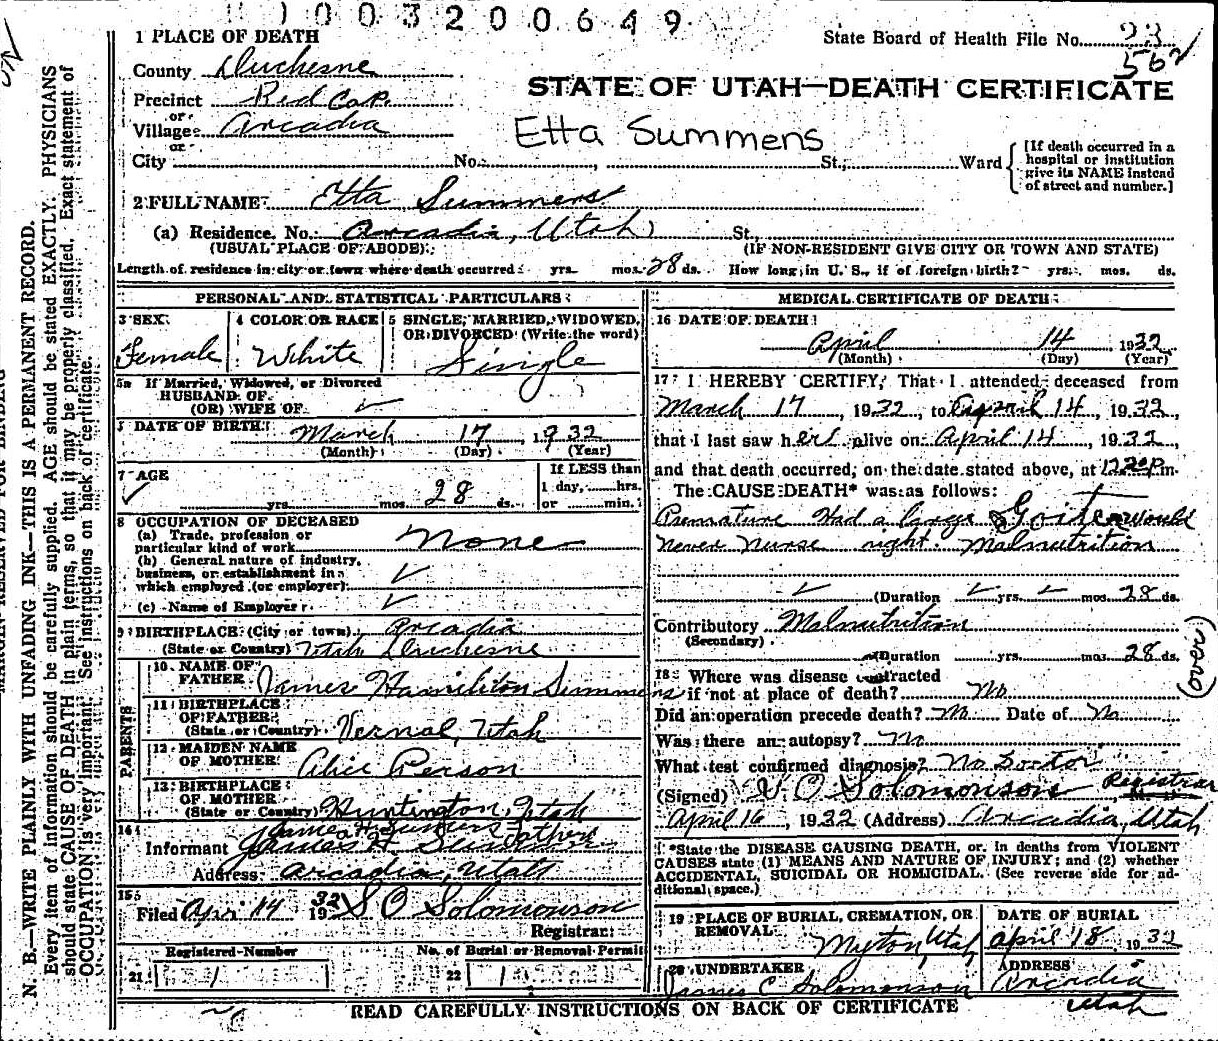 1003200649
1 PLACE OF DEATH
State Board of Health File No. 23
562
County Duchesne
STATE OF UTAH—DEATH CERTIFICATE
Precinct Red Cap
or
Village Arcadia
Etta Summens
or
City No. , St., Ward
[If death occurred in a hospital or institution give its NAME instead of street and number.]
2 FULL NAME Etta Summers
(a) Residence. No. Arcadia, Utah St.
(USUAL PLACE OF ABODE) (IF NON-RESIDENT GIVE CITY OR TOWN AND STATE)
Length of residence in city or town where death occurred yrs. mos. 28 ds. How long in U. S., if of foreign birth? yrs. mos. ds.
PERSONAL AND STATISTICAL PARTICULARS
3 SEX
Female
4 COLOR OR RACE
White
5 SINGLE, MARRIED, WIDOWED, OR DIVORCED (Write the word)
Single
5a If Married, Widowed, or Divorced
HUSBAND OF
(OR) WIFE OF
DATE OF BIRTH March 17 1932
(Month) (Day) (Year)
7 AGE
yrs. mos. 28 ds.
If LESS than
1 day, hrs.
or min.
8 OCCUPATION OF DECEASED
(a) Trade, profession or
particular kind of work None
(b) General nature of industry,
business, or establishment in
which employed (or employer)
(c) Name of Employer
9 BIRTHPLACE (City or town) Arcadia
(State or Country) Utah Duchesne
PARENTS
10 NAME OF
FATHER James Hamilton Summers
11 BIRTHPLACE
OF FATHER
(State or Country) Vernal, Utah
12 MAIDEN NAME
OF MOTHER Alice Person
13 BIRTHPLACE
OF MOTHER
(State or Country) Huntington, Utah
14
Informant James H Summers Father
Address Arcadia, Utah
15
Filed April 14 1932 S O Solomonson
Registrar
Registered Number No. of Burial or Removal Permit
21 1 22 1
MEDICAL CERTIFICATE OF DEATH
16 DATE OF DEATH
April 14 1932
(Month) (Day) (Year)
17 I HEREBY CERTIFY, That I attended deceased from
March 17, 1932, to April 14, 1932,
that I last saw her alive on April 14, 1932,
and that death occurred, on the date stated above, at 1220 p.m.
The CAUSE DEATH* was as follows:
Premature Had a large Goiter would
never nurse right. Malnutrition
(Duration yrs. mos. 28 ds.
Contributory Malnutrition
(Secondary)
(Duration yrs. mos. 28 ds.
(over)
18 Where was disease contracted
if not at place of death? No
Did an operation precede death? No Date of No
Was there an autopsy? No
What test confirmed diagnosis? No Doctor
(Signed) S O Solomonson Registrar
April 16, 1932 (Address) Arcadia, Utah
*State the DISEASE CAUSING DEATH, or in deaths from VIOLENT
CAUSES state (1) MEANS AND NATURE OF INJURY; and (2) whether
ACCIDENTAL, SUICIDAL OR HOMICIDAL. (See reverse side for ad-
ditional space.)
19 PLACE OF BURIAL, CREMATION, OR
REMOVAL
Myton, Utah
DATE OF BURIAL
April 18, 1932
20 UNDERTAKER
James C Solomonson
ADDRESS
Arcadia
Utah
READ CAREFULLY INSTRUCTIONS ON BACK OF CERTIFICATE
N. B.—WRITE PLAINLY WITH UNFADING INK—THIS IS A PERMANENT RECORD.
Every item of information should be carefully supplied. AGE should be stated EXACTLY. PHYSICIANS
should state CAUSE OF DEATH in plain terms, so that it may be properly classified. Exact statement of
OCCUPATION is very important. See instructions on back of certificate.